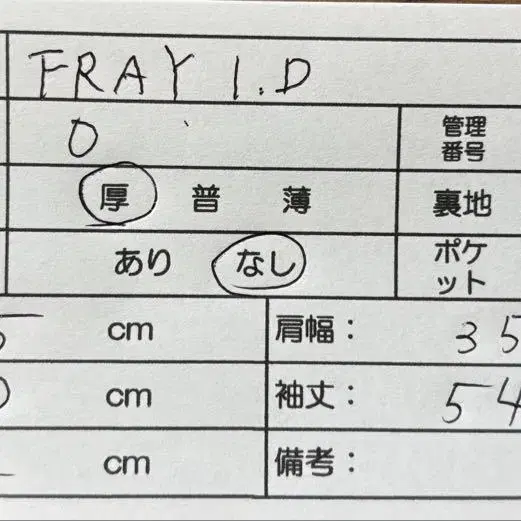 FRAY I.D
0 管理番号
厚 普 薄 裏地
あり なし ポケット
5 cm 肩幅： 35
0 cm 袖丈： 54
cm 備考：